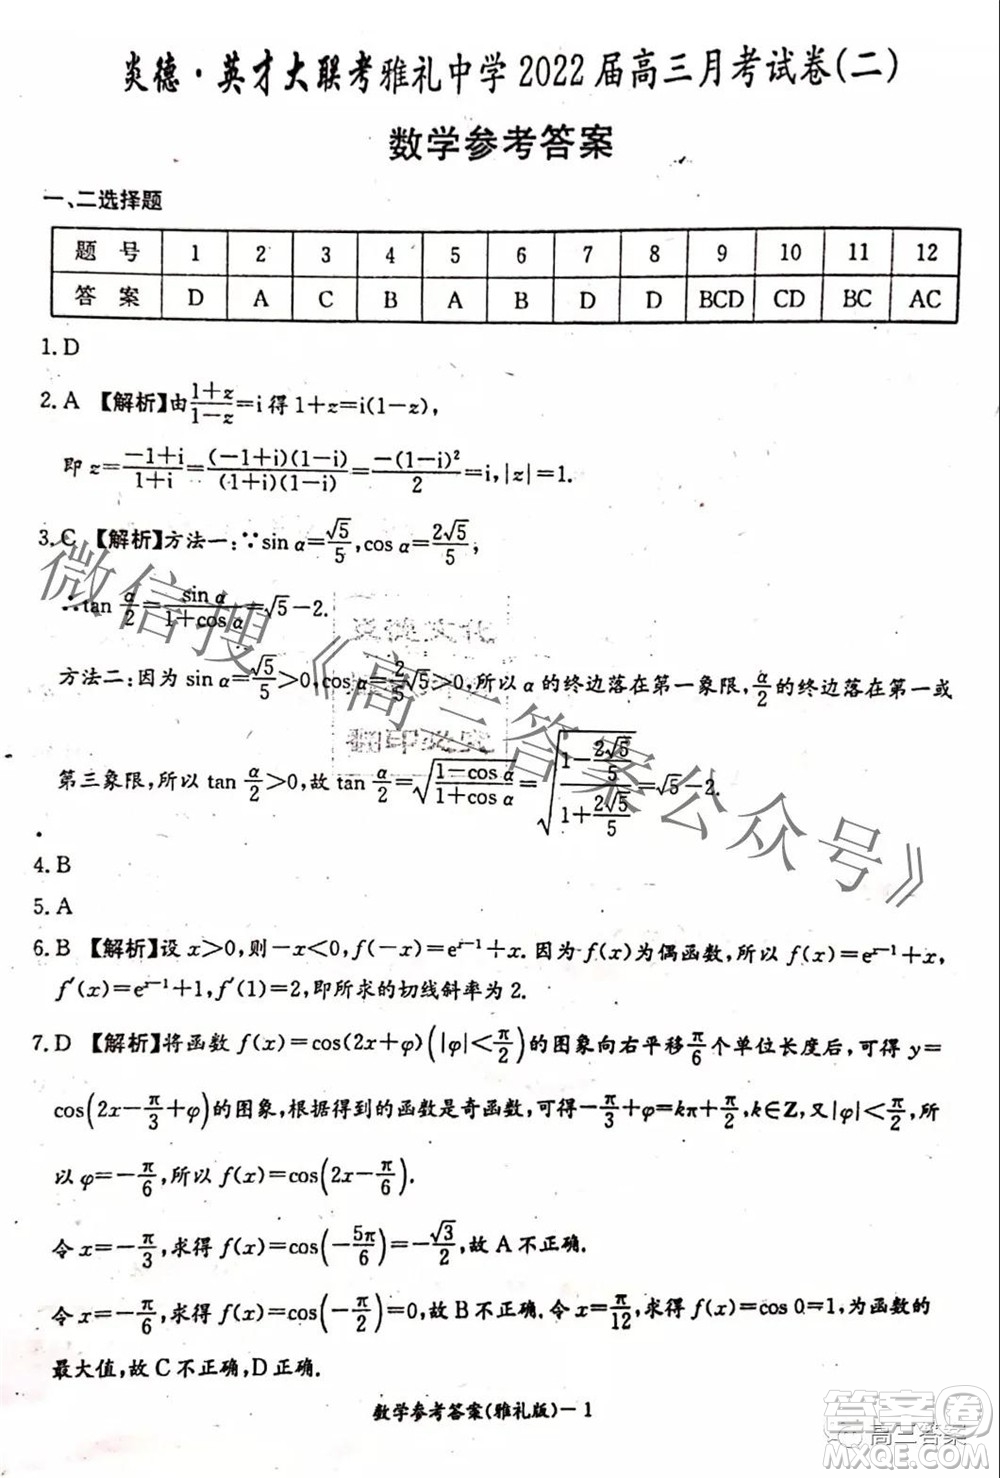 炎德·英才大联考雅礼中学2022届高三月考试卷(二)
数学参考答案
一、二选择题
题号 1 2 3 4 5 6 7 8 9 10 11 12
答案 D A C B A B D D BCD CD BC AC
1. D
2. A 【解析】由(1+z)/(1−z)=i得1+z=i(1−z),
即z=(−1+i)/(1+i)=(−1+i)(1−i)/(1+i)(1−i)=−(1−i)²/2=i,|z|=1.
3. C 【解析】方法一:∵sin α=√5/5,cos α=2√5/5,
∴tan α/2=sin α/(1+cos α)=√5−2.
方法二:因为sin α=√5/5>0,cos α=2/5√5>0,所以α的终边落在第一象限,α/2的终边落在第一或
第三象限,所以tan α/2>0,故tan α/2=√((1−cos α)/(1+cos α))=√((1−2√5/5)/(1+2√5/5))=√5−2.
4. B
5. A
6. B 【解析】设x>0,则−x<0,f(−x)=e^(x−1)+x.因为f(x)为偶函数,所以f(x)=e^(x−1)+x,
f′(x)=e^(x−1)+1,f′(1)=2,即所求的切线斜率为2.
7. D 【解析】将函数f(x)=cos(2x+φ)(|φ|<π/2)的图象向右平移π/6个单位长度后,可得y=
cos(2x−π/3+φ)的图象,根据得到的函数是奇函数,可得−π/3+φ=kπ+π/2,k∈Z,又|φ|<π/2,所
以φ=−π/6,所以f(x)=cos(2x−π/6).
令x=−π/3,求得f(x)=cos(−5π/6)=−√3/2,故A不正确.
令x=−π/6,求得f(x)=cos(−π/2)=0,故B不正确.令x=π/12,求得f(x)=cos 0=1,为函数的
最大值,故C不正确,D正确.
数学参考答案(雅礼版)－1
微信搜《高三答案公众号》
答案圈
高三答案
MXQE.COM